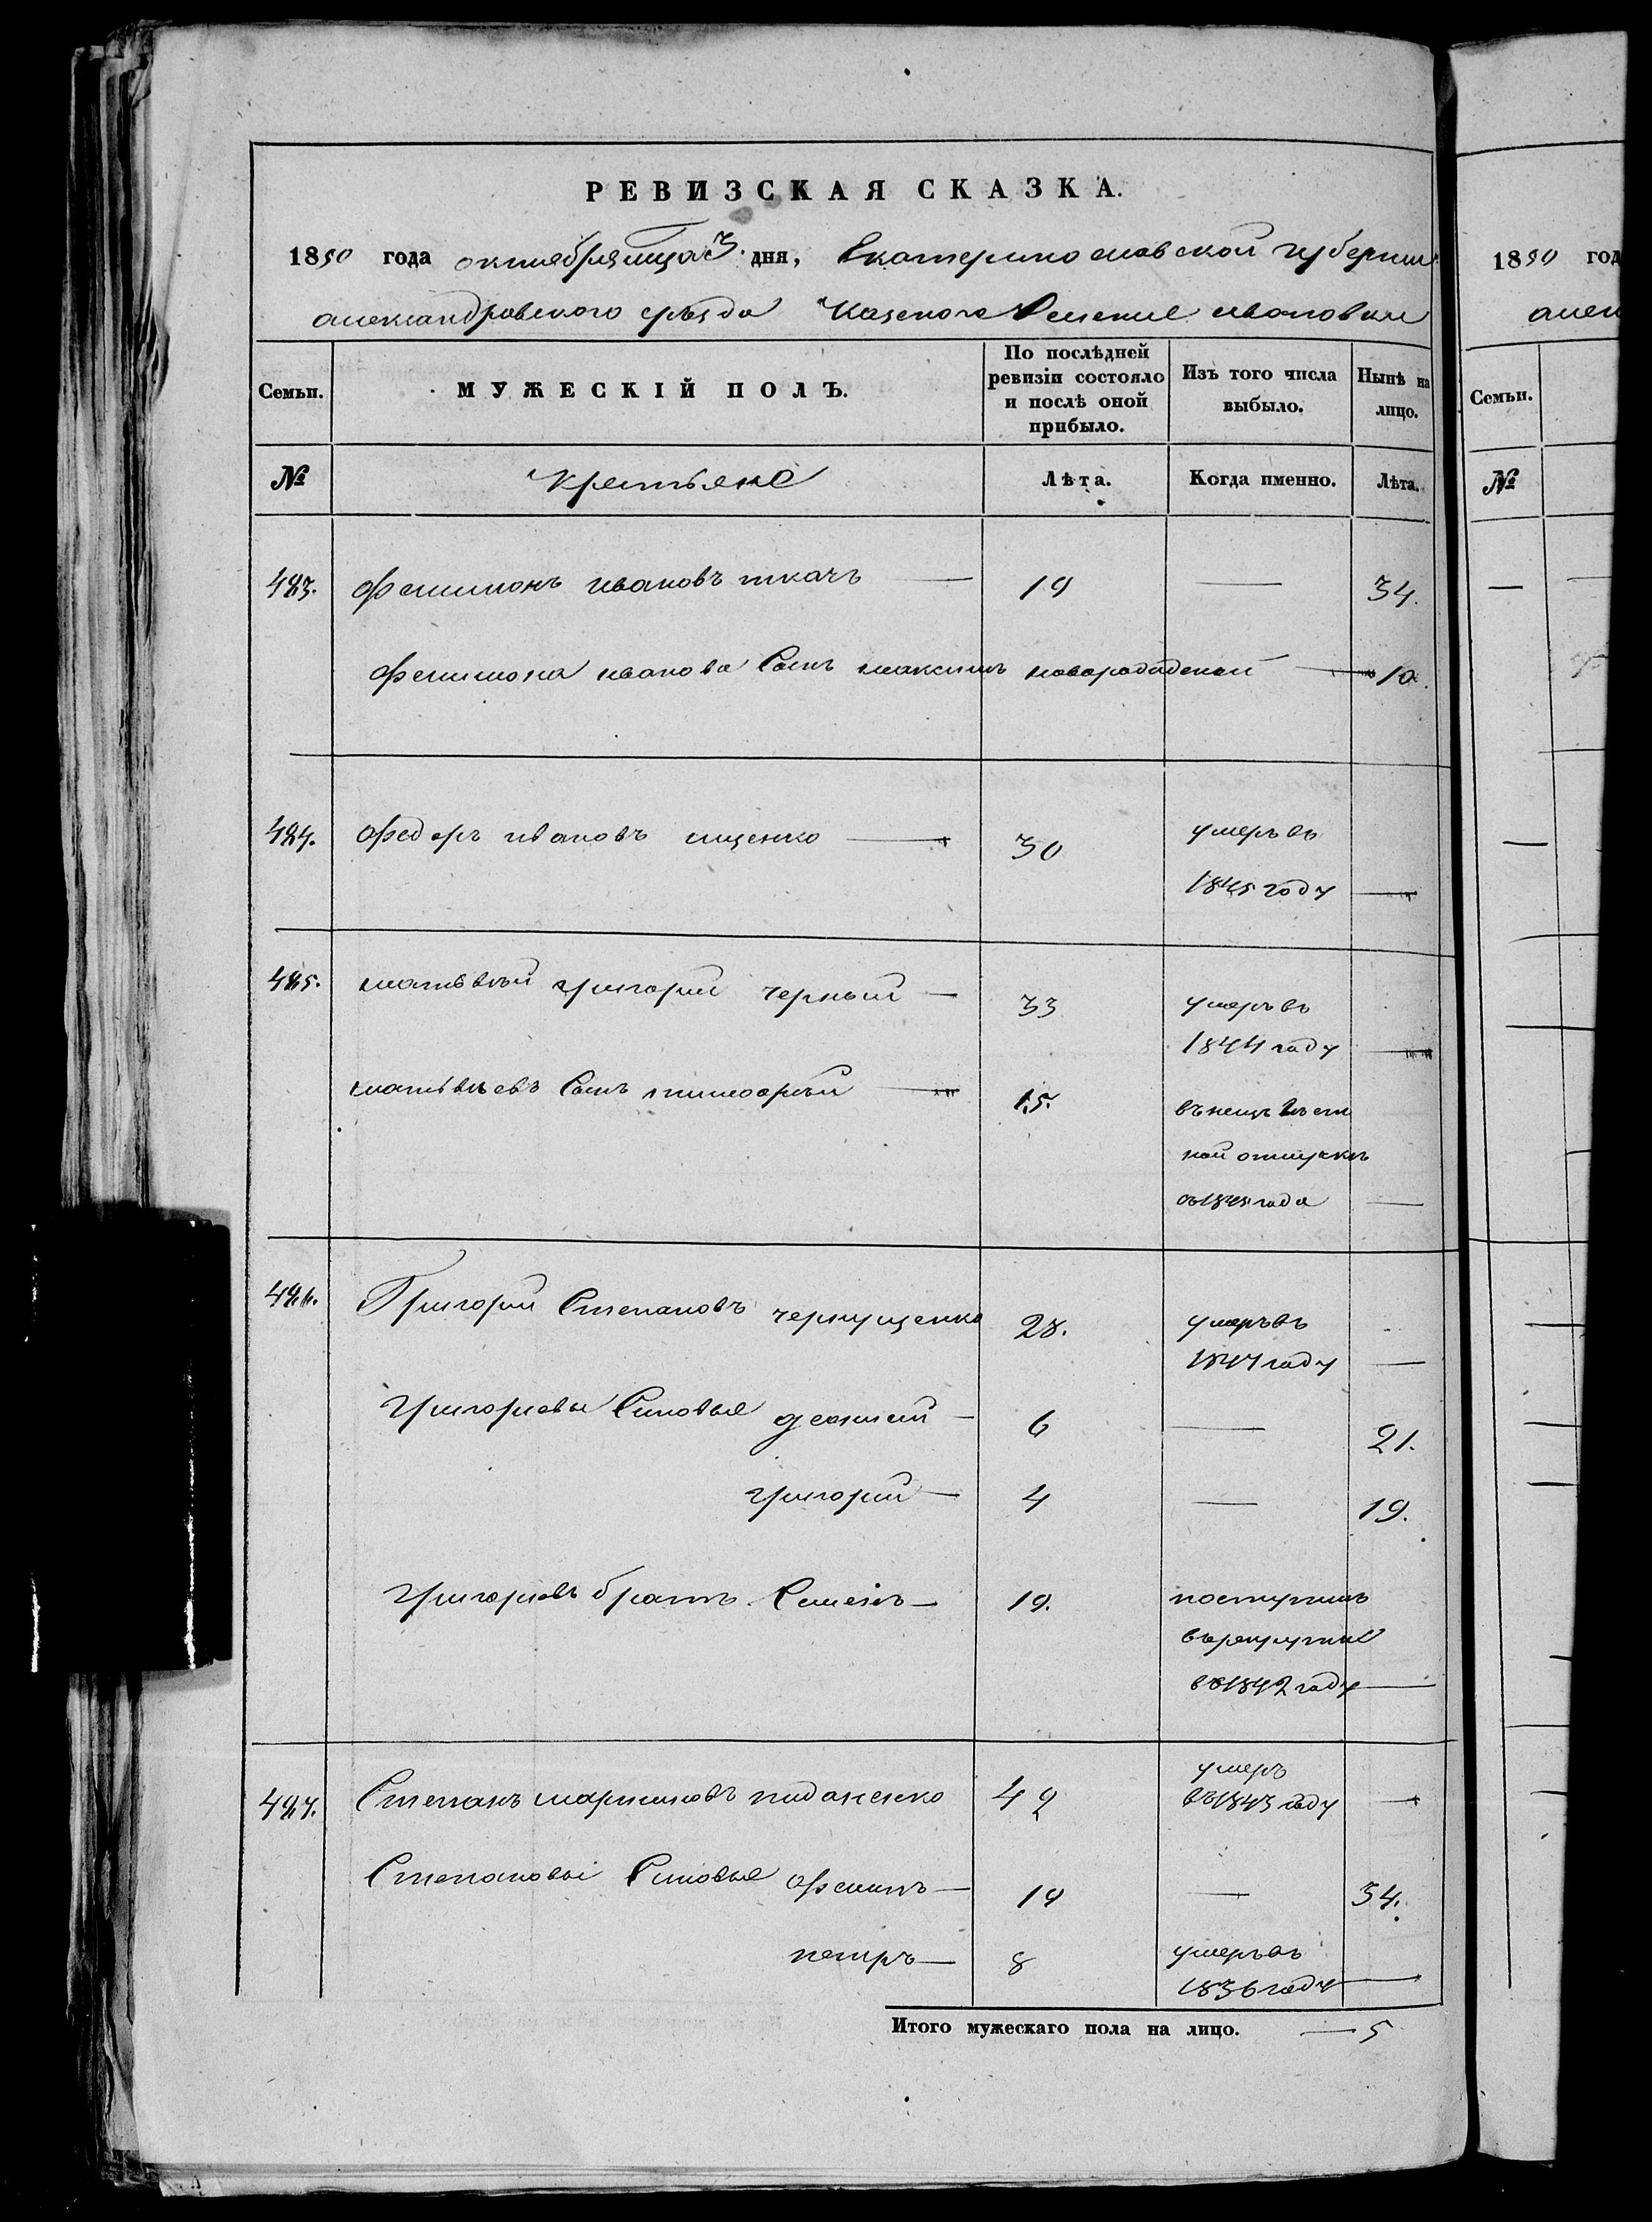 РЕВИЗСКАЯ СКАЗКА.
1850 года октября мца 3 дня, Екатеринославской губернии
александровского уѣзда Казеного Селение ивановки
Семьи. МУЖЕСКІЙ ПОЛЪ. По послѣдней ревизіи состояло и послѣ оной прибыло. Изъ того числа выбыло. Нынѣ на лицо.
№ крестьяне Лѣта. Когда именно. Лѣта.
483. Филимонъ ивановъ ткачъ — 19 — 34.
Филимона иванова Сынъ максимъ новорожденой — 10.
484. Федоръ ивановъ ищенко — 30 умеръ въ
1845 году —
485. матвѣй григорий черный — 33 умеръ въ
1844 году —
матвѣевъ Сынъ тимофѣй — 15. въ неизвѣст
ной отлучкѣ
съ 1845 года —
486. Григорий Степановъ чернущенко 28. умеръ въ
1847 году —
григориевы Синовья — 6 — 21.
григорий — 4 — 19.
григориевъ братъ Семенъ — 19. поступилъ
в рекруты
въ 1842 году —
487. Степанъ мартиновъ пидоненко 42 умеръ
въ 1843 году —
Степановы Синовья Филипъ — 19 — 34.
петръ — 8 умеръ въ
1836 году —
Итого мужескаго пола на лицо. — 5
1850 год
алек
Семьи.
№